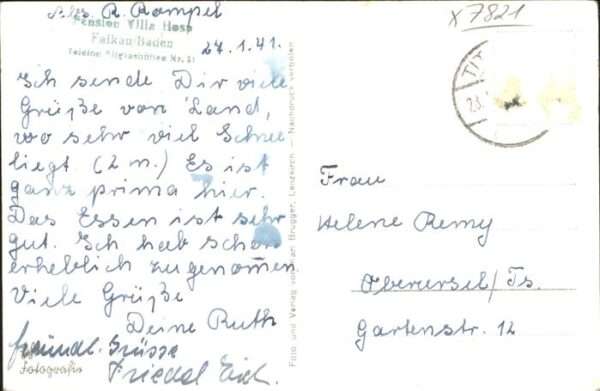 R. Rompel
Pension Villa Hosp
Falkau-Baden
27.1.41.
Ich sende Dir viele
Grüße von Land,
wo sehr viel Schnee
liegt (2 m.) Es ist
ganz prima hier.
Das Essen ist sehr
gut. Ich hab schon
erheblich zugenommen
Viele Grüße
Deine Ruth
freundl. Grüsse
Friedel
Fotografie
Foto und Verlag von Brugger, Lenzkirch. – Nachdruck verboten
X 7821
TI
23.
Frau
Helene Remy
Oberursel/Ts.
Gartenstr. 12